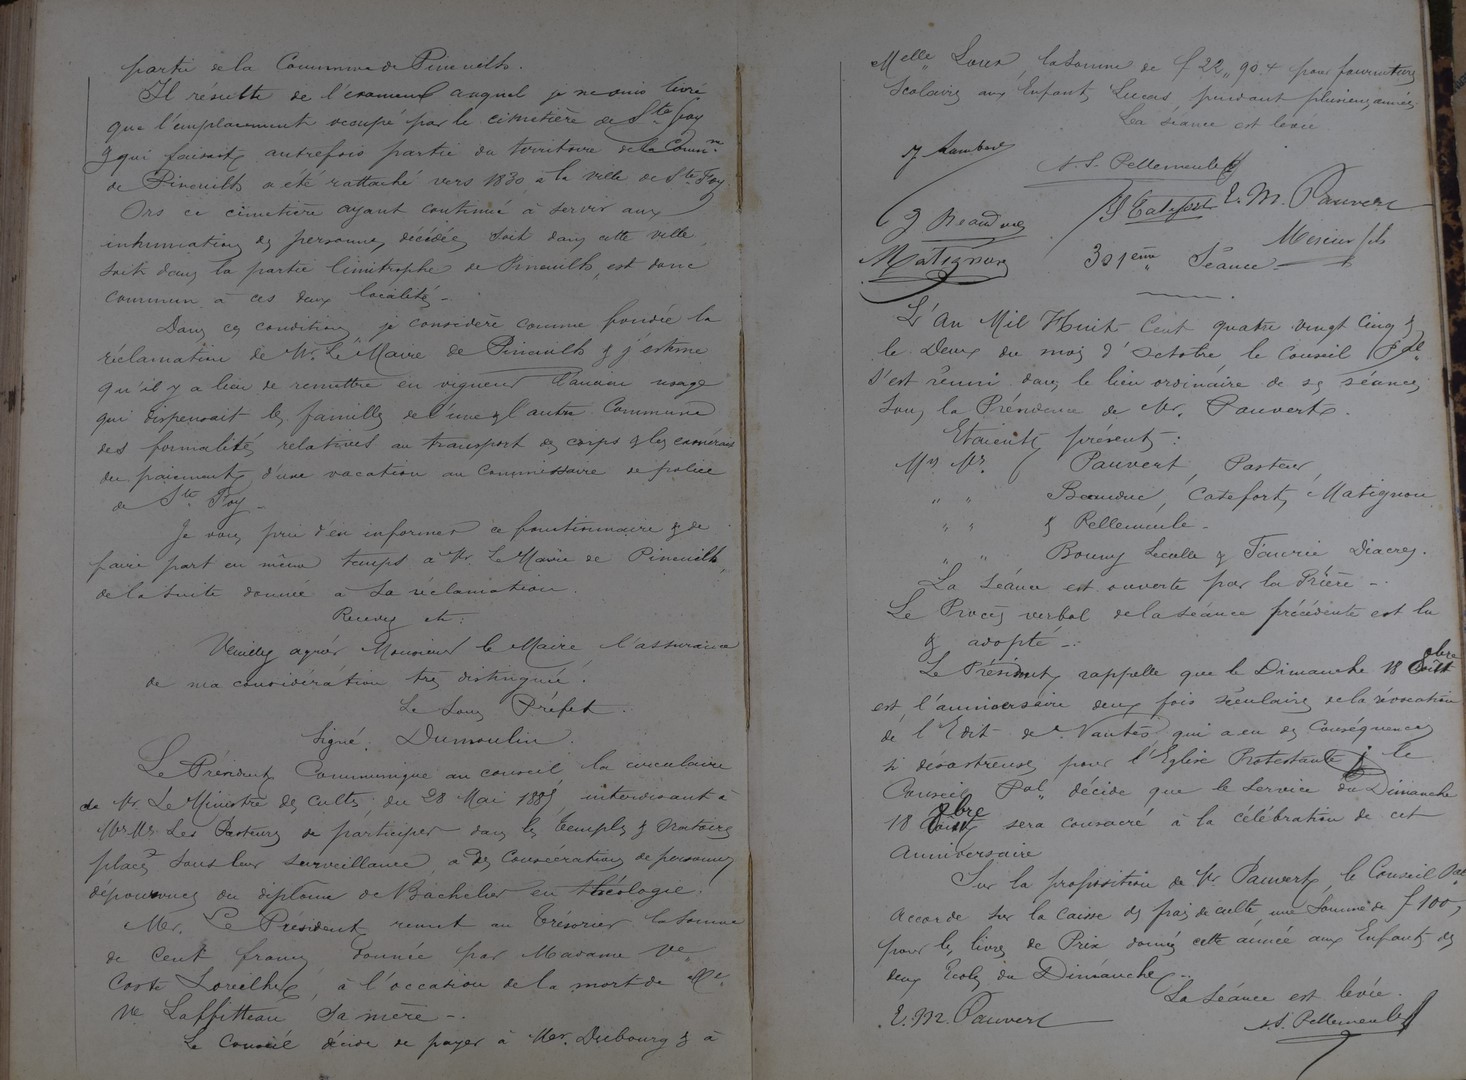 partie de la Commune de Pineuilh.
Il résulte de l'examen auquel je me suis livré
que l'emplacement occupé par le cimetière de Ste Foy
& qui faisait autrefois partie du territoire de la Commne
de Pineuilh a été rattaché vers 1830 à la ville de Ste Foy.
Ors ce cimetière ayant continué à servir aux
inhumations des personnes décédées soit dans cette ville
soit dans la partie limitrophe de Pineuilh, est donc
commun à ces deux localités.
Dans ces conditions, je considère comme fondée la
réclamation de Mr. Le Maire de Pineuilh & j'estime
qu'il y a lieu de remettre en vigueur l'ancien usage
qui dispensait les familles de l'une & l'autre Commune
des formalités relatives au transport des corps & les exonérait
du paiement d'une vacation au Commissaire de police
de Ste Foy.
Je vous prie d'en informer ce fonctionnaire & de
faire part en même temps à Mr Le Maire de Pineuilh
de la suite donnée à sa réclamation.
Recevez etc:
Veuillez agréer Monsieur le Maire l'assurance
de ma considération très distinguée.
Le Sous Préfet.
Signé: Dumoulin.
Le Président Communique au conseil la circulaire
de Mr. Le Ministre des Cultes du 28 Mai 1885 interdisant à
Mrs Mrs Les Pasteurs de participer dans les temples & Oratoires
placés sous leur surveillance, à des Consécrations de personnes
dépourvues du diplôme de Bachelier en théologie.
Mr. Le Président remet au trésorier la somme
de Cent francs donnée par Madame Ve
Coste Loreilhe, à l'occation de la mort de Me
Ve Laffitteau sa mère -.
Le Conseil décide de payer à Mr. Dubourg & à
Melle Loux la somme de f 22,,90 + pour fournitures
Scolaires aux Enfants Lucas pendant plusieurs années
La séance est levée
A. S. Pellemeule
J Catefort E. M. Pauvert
J Beauduc
Matignon
Mesieur fils
301eme Séance
L'An Mil Huit Cent quatre vingt Cinq &
le Deux du mois d'Octobre le Conseil Pal
S'est réuni dans le lieu ordinaire de ses séances
sous la Présidence de Mr. Pauvert.
Etaient présents:
Mrs Mrs. Pauvert, Pasteur,
" " Beauduc, Catefort, Matignon
" " & Pellemeule -
" " Bonny Lecelle & Faurie Diacres.
La Séance est ouverte par la Prière -.
Le Procès verbal de la séance précédente est lu
& adopté -.
Le Président rappelle que le Dimanche 18 8bre
est l'anniversaire deux fois séculaires de la révocation
de l'Edit de Nantes qui a eu des Conséquences
si désastreuses pour l'Eglise Protestante & le
Conseil Pal décide que le Service du Dimanche
18 8bre sera consacré à la célébration de cet
Anniversaire
Sur la proposition de Mr Pauvert, le Conseil Pal
Accorde sur la caisse des frais de culte une Somme de f 100,
pour les livres de Prix donnés cette année aux Enfants des
deux Ecoles du Dimanche -.
La séance est levée.
E. M. Pauvert
A. S. Pellemeule